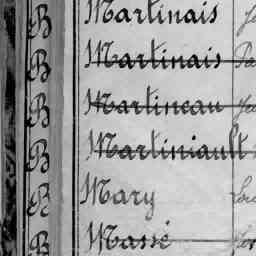 B Martinais
B Martinais Pa
B Martineau
B Martiniault
B Mary
B Massé